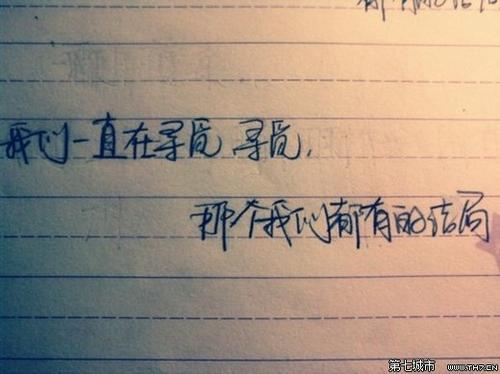 我们一直在寻觅 寻觅,
那个我们都有的结局
第七城市 WWW.TH7.CN